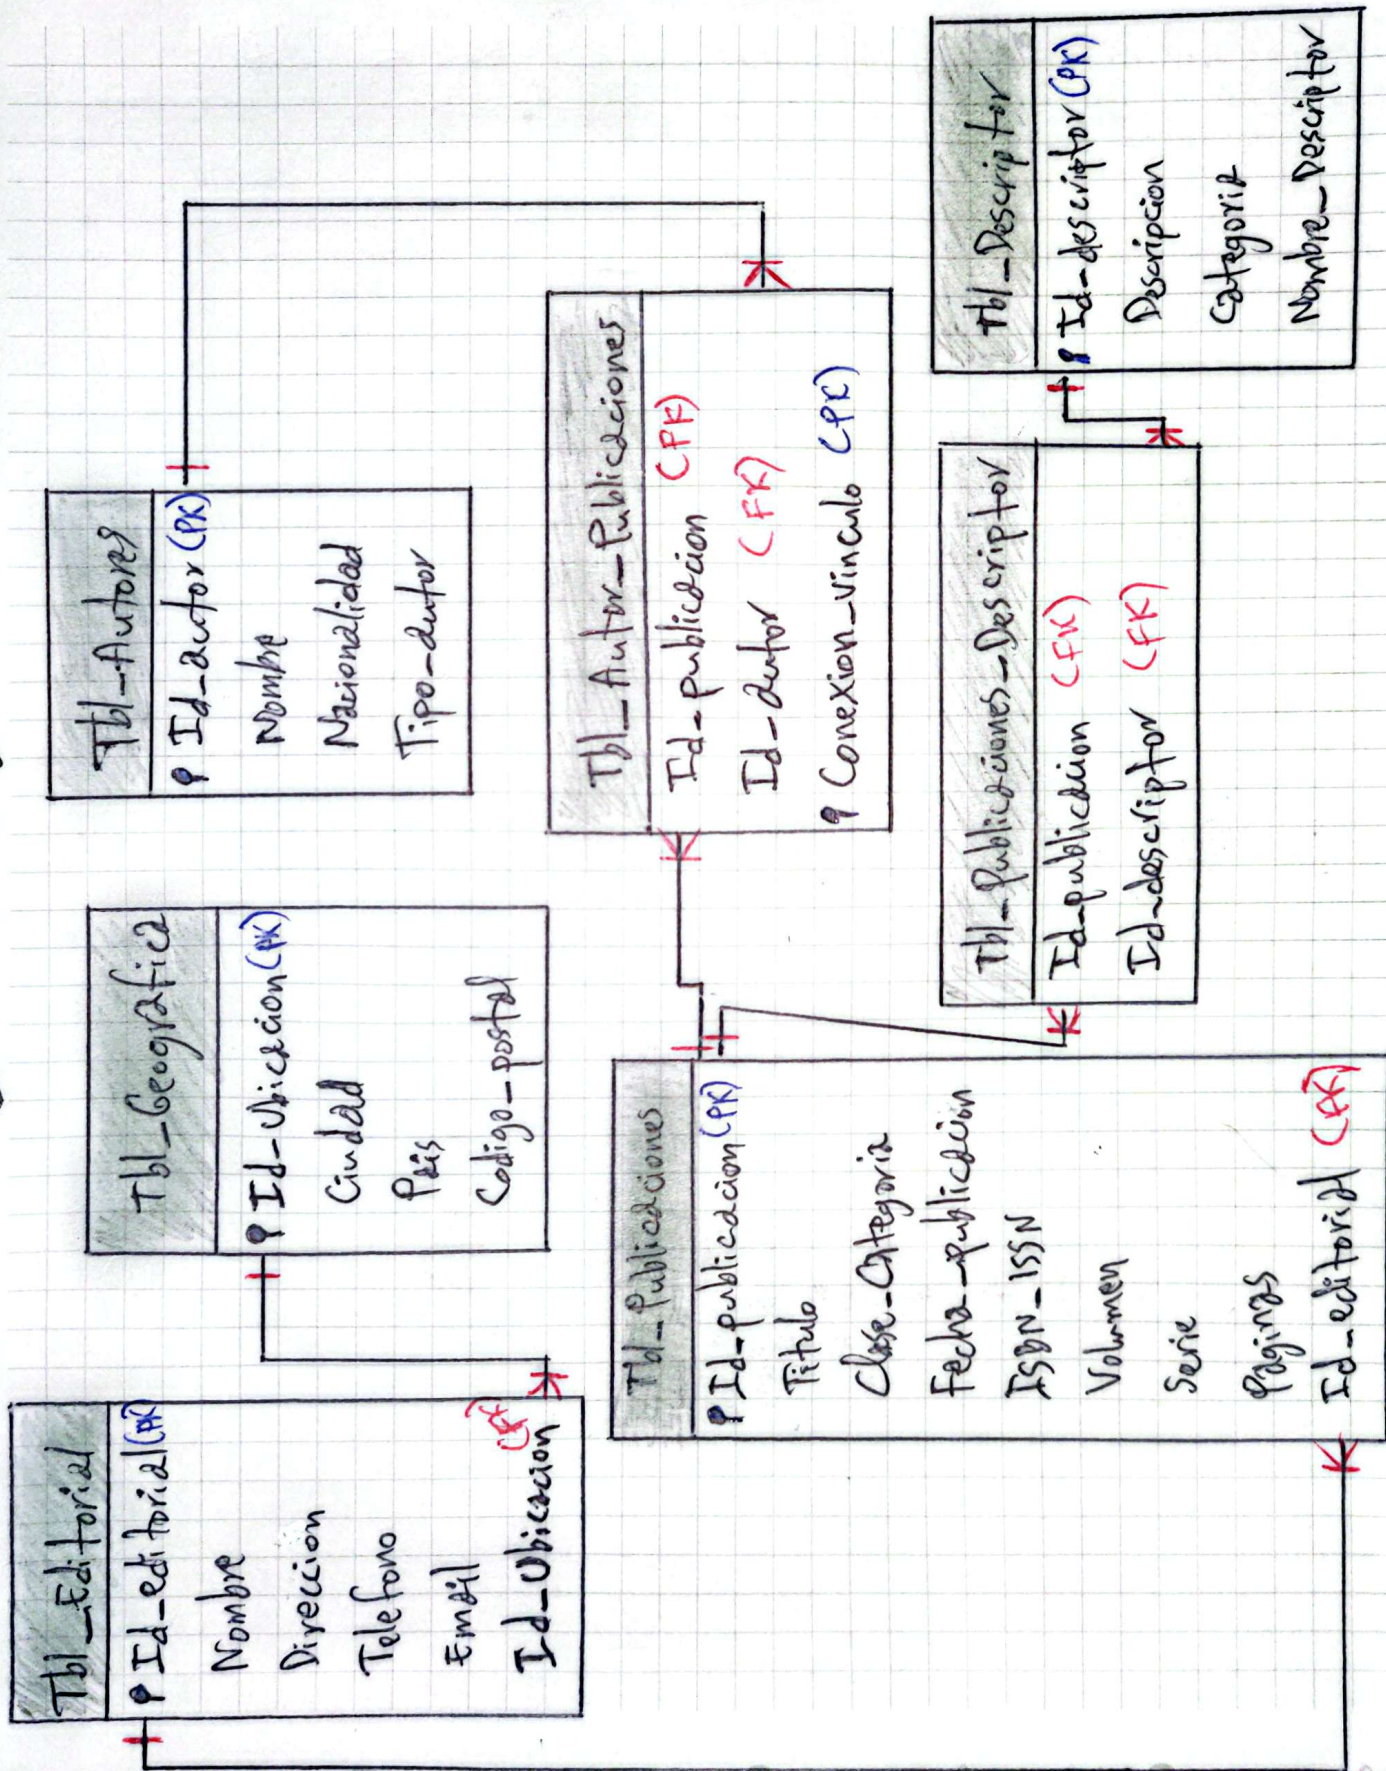 Tbl_Editorial
Id_editorial (PK)
Nombre
Direccion
Telefono
Email
Id_Ubicacion (FK)
Tbl_Geografica
Id_Ubicacion (PK)
Ciudad
Pais
Codigo_postal
Tbl_Autores
Id_autor (PK)
Nombre
Nacionalidad
Tipo_autor
Tbl_Publicaciones
Id_publicacion (PK)
Titulo
Clase_Categoria
Fecha_publicacion
ISBN_ISSN
Volumen
Serie
Paginas
Id_editorial (FK)
Tbl_Autor_Publicaciones
Id_publicacion (FK)
Id_autor (FK)
Conexion_vinculo (PK)
Tbl_Publicaciones_Descriptor
Id_publicacion (FK)
Id_descriptor (FK)
Tbl_Descriptor
Id_descriptor (PK)
Descripcion
Categoria
Nombre_Descriptor